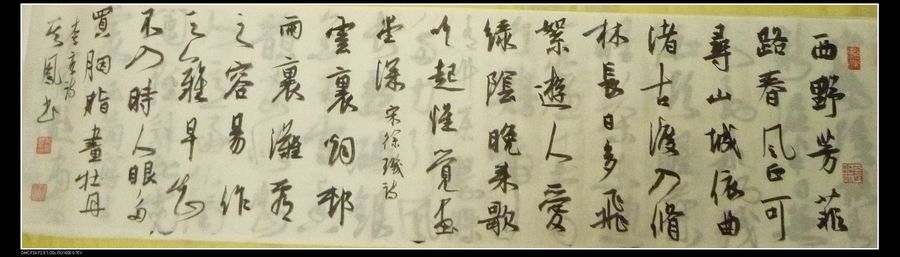 西野芳菲
路春风正可
尋山城依曲
渚古渡入脩
林長日多飛
絮遊人愛
綠陰晚来歌
吹起惟覺畫
堂深 宋徐璣詩
雲裏烟邨
雨裏灘看
之容易作
之難早知
不入時人眼多
買胭脂畫牡丹
李唐詩
凤书